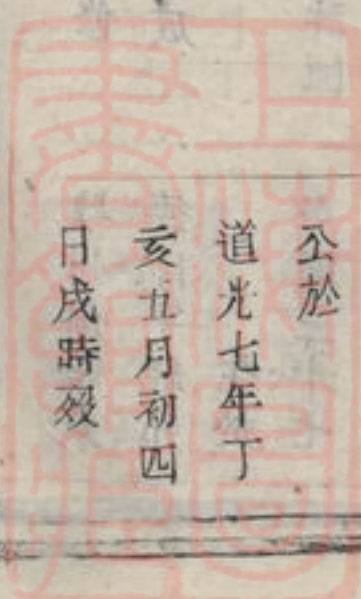 公於
道光七年丁
亥五月初四
日戌時殁